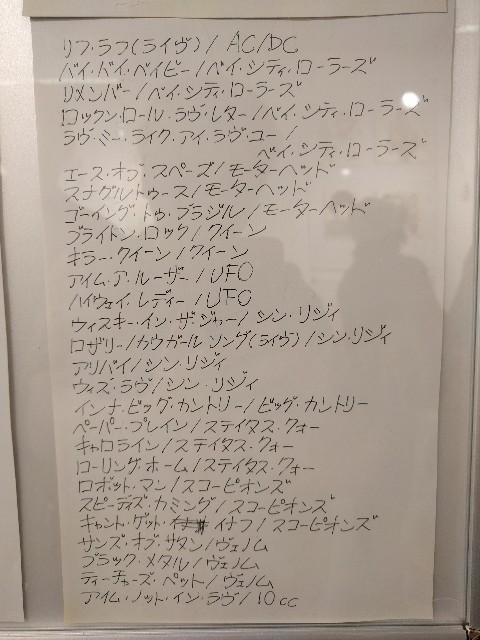 リフ・ラフ(ライヴ) / AC/DC
バイ・バイ・ベイビー / ベイ・シティ・ローラーズ
リメンバー / ベイ・シティ・ローラーズ
ロックン・ロール・ラヴ・レター / ベイ・シティ・ローラーズ
ラヴ・ミー・ライク・アイ・ラヴ・ユー /
ベイ・シティ・ローラーズ
エース・オブ・スペーズ / モーターヘッド
スナグルトゥース / モーターヘッド
ゴーイング・トゥ・ブラジル / モーターヘッド
ブライトン・ロック / クイーン
キラー・クイーン / クイーン
アイム・ア・ルーザー / UFO
ハイウェイ・レディー / UFO
ウィスキー・イン・ザ・ジャー / シン・リジィ
ロザリー / カウガール ソング(ライヴ) / シン・リジィ
アリバイ / シン・リジィ
ウィズ・ラヴ / シン・リジィ
インナ・ビッグ・カントリー / ビッグ・カントリー
ペーパー・プレイン / ステイタス・クォー
キャロライン / ステイタス・クォー
ローリング・ホーム / ステイタス・クォー
ロボット・マン / スコーピオンズ
スピーディズ・カミング / スコーピオンズ
キャント・ゲット・イナフ / スコーピオンズ
サンズ・オブ・サタン / ヴェノム
ブラック・メタル / ヴェノム
ティーチャーズ・ペット / ヴェノム
アイム・ノット・イン・ラヴ / 10cc